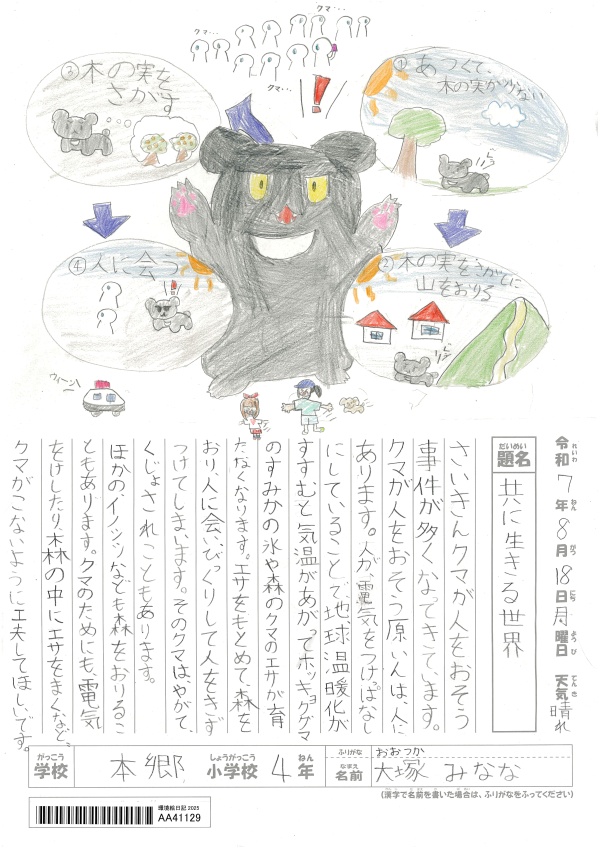 クマ…
クマ…
①あつくて、
木の実が少ない
②木の実をさがしに
山をおりる
③木の実を
さがす
④人に会う
ウィーン
令和7年8月18日月曜日 天気 晴れ
れいわ ねん がつ にち ようび てんき
だいめい
題名 共に生きる世界
さいきんクマが人をおそう
事件が多くなってきています。
クマが人をおそう原いんは、人に
あります。人が、電気をつけっぱなし
にしていることで、地球温暖化が
すすむと気温があがってホッキョクグマ
のすみかの氷や森のクマのエサが育
たなくなります。エサをもとめて、森を
おり人に会い、びっくりして人をきず
つけてしまいます。そのクマは、やがて、
くじょされこともあります。
ほかのイノシシなども森をおりるこ
ともあります。クマのためにも、電気
をけしたり、森の中にエサをまくなど、
クマがこないように工夫してほしいです。
がっこう しょうがっこう ねん
学校 本郷 小学校 4年
ふりがな おおつか
なまえ
名前 大塚 みなな
(漢字で名前を書いた場合は、ふりがなをふってください)
環境絵日記 2025
AA41129